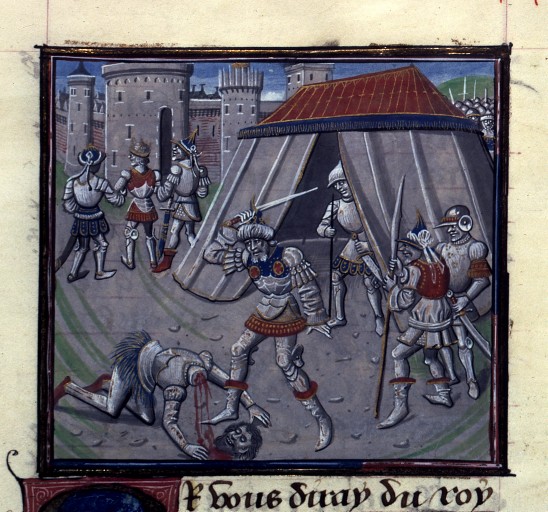 R vous diray du roy